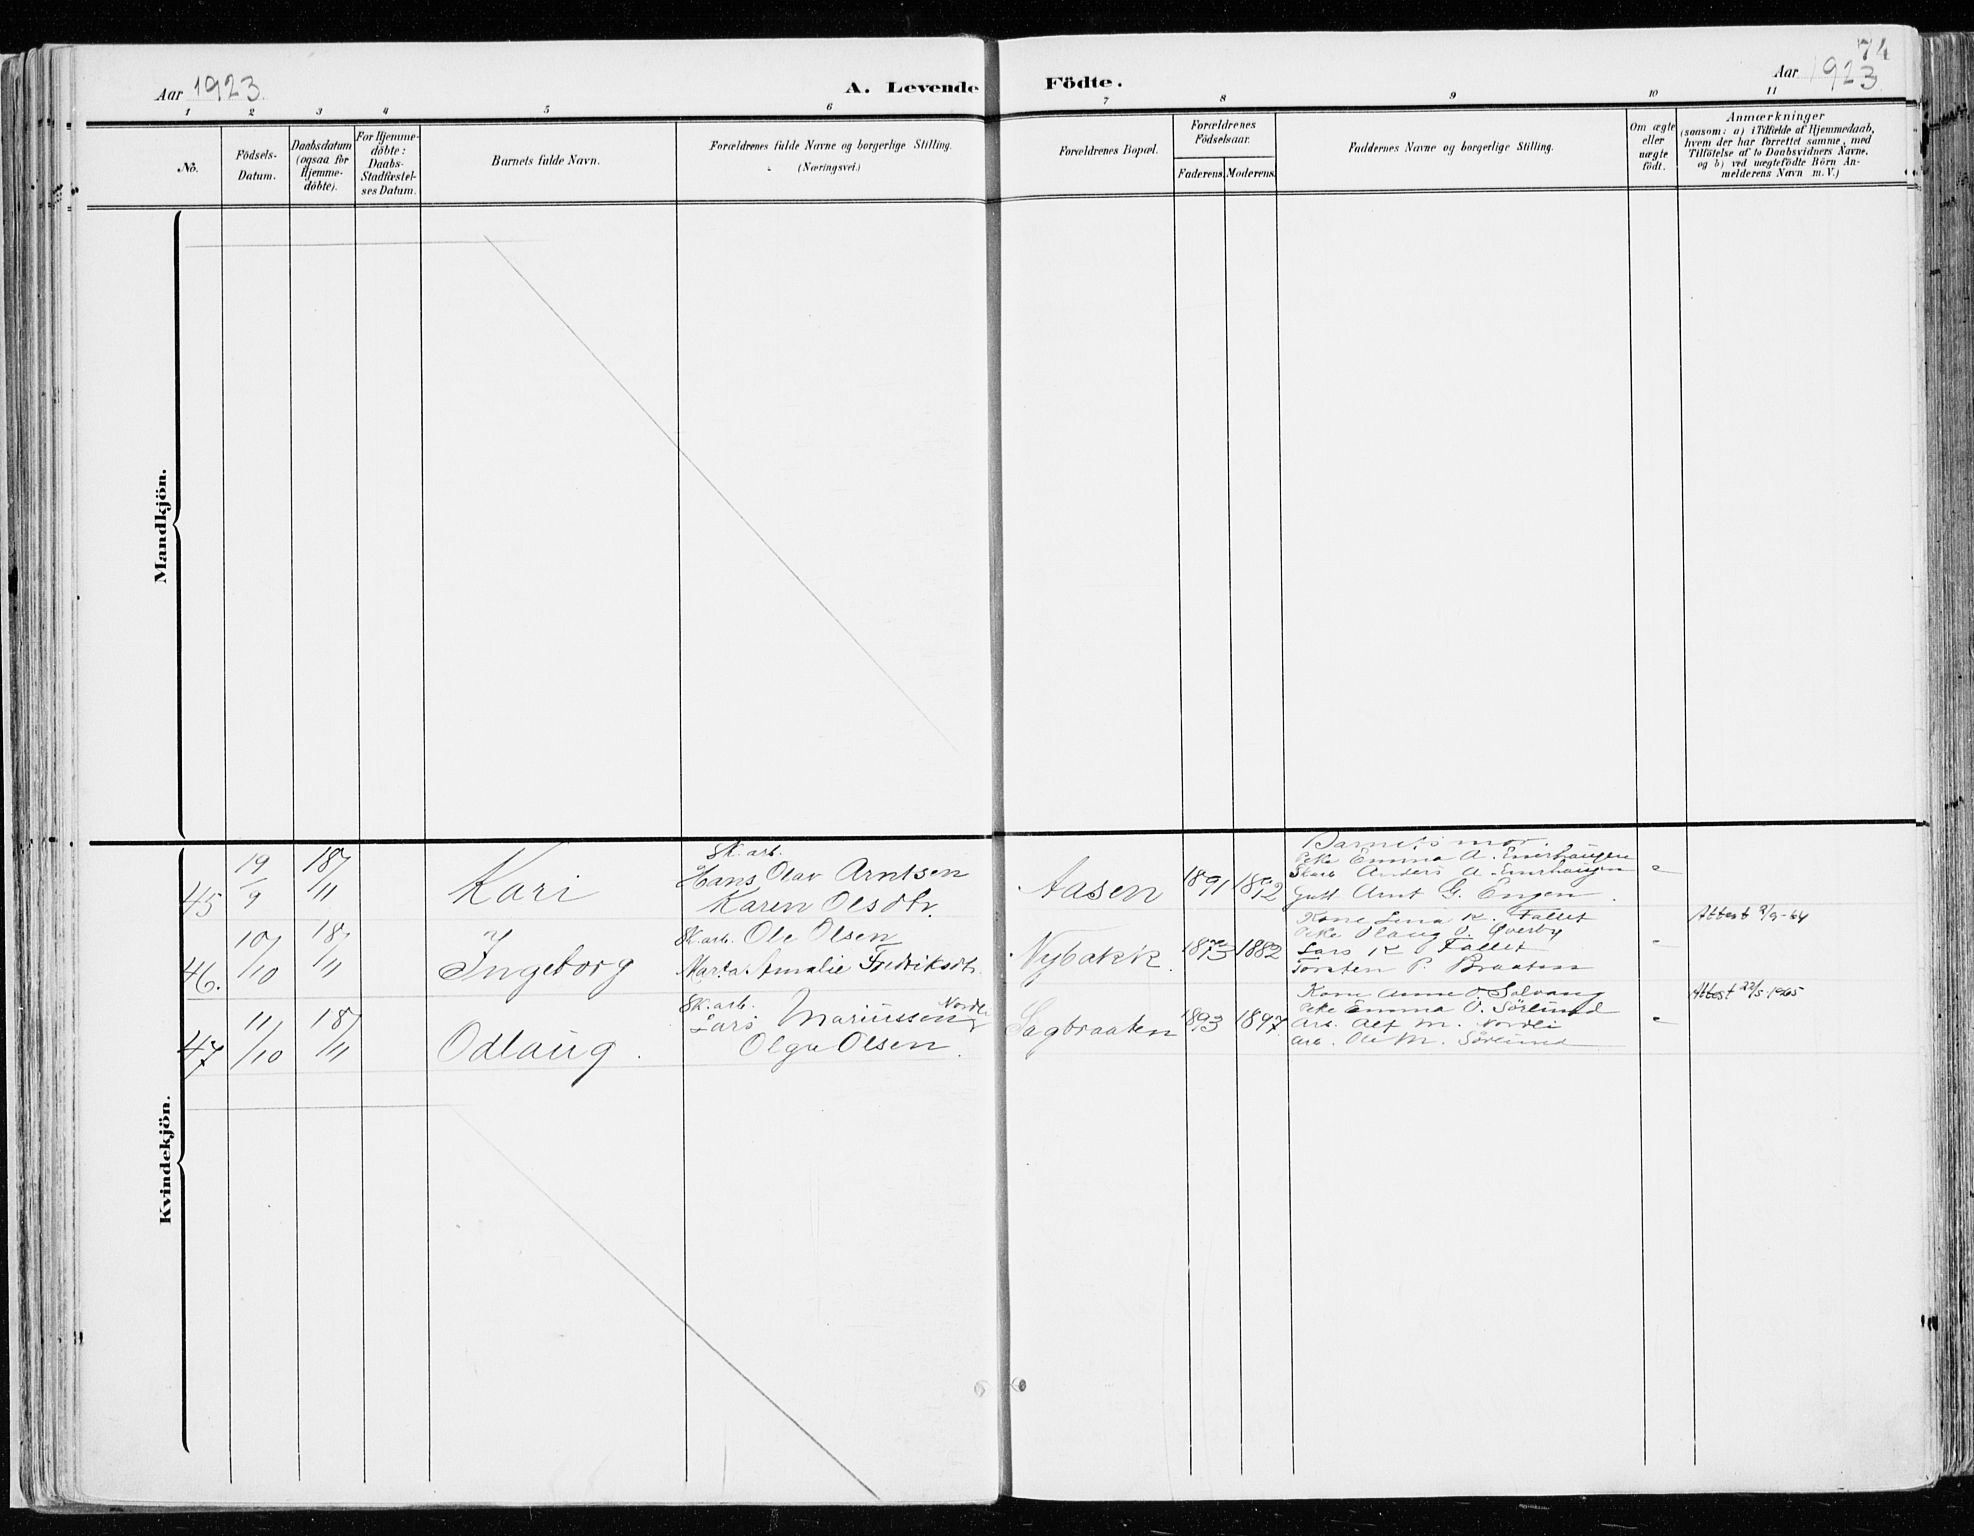 Aar 1923.
A. Levende Födte.
74
Aar 1923.
1 2 3 4 5 6 7 8 9 10 11
No.
Födsels-
Datum.
Daabsdatum
(ogsaa for
Hjemme-
döbte).
For Hjemme-
döbte:
Daabs-
Stadfæstel-
ses Datum.
Barnets fulde Navn.
Forældrenes fulde Navne og borgerlige Stilling.
(Næringsvei.)
Forældrenes Bopæl.
Forældrenes
Födselsaar.
Faderens. Moderens.
Faddernes Navne og borgerlige Stilling.
Om ægte
eller
uægte
født.
Anmærkninger
(saasom: a) i Tilfælde af Hjemmedaab,
hvem der har forrettet samme, med
Tilföielse af to Daabsvidners Navne.
og b) ved uægtefödte Börn An-
melderens Navn m. V.)
Mandkjön.
Kvindekjön.
45
19/9
18/11
Kari
Sk.arb.
Hans Olav Arntsen
Karen Olsdtr.
Aasen
1891
1892
Barnets mor.
Pike Emma A. Enerhaugen
Skarb Anders A. Enerhaugen
Gutt Arnt G. Engen.
"
46.
10/10
18/11
Ingeborg
Sk.arb. Ole Olsen
Marta Amalie Fredriksdtr.
Nybakk.
1873
1882
Kone Lina K. Fallet
Pike Olaug O. Øverby
Lars K Fallet
Torsten P. Braaten
"
Attest 9/9-64
47
11/10
18/11
Odlaug.
Sk.arb. Nordli
Lars Mariussen
Olga Olsen.
Sagbraaten
1893
1897
Kone Anne O. Solvang
Pike Emma O. Sörlund
Arb. Alf M. Nordli
Arb. Ole M. Sörlund
"
Attest 22/5-1965